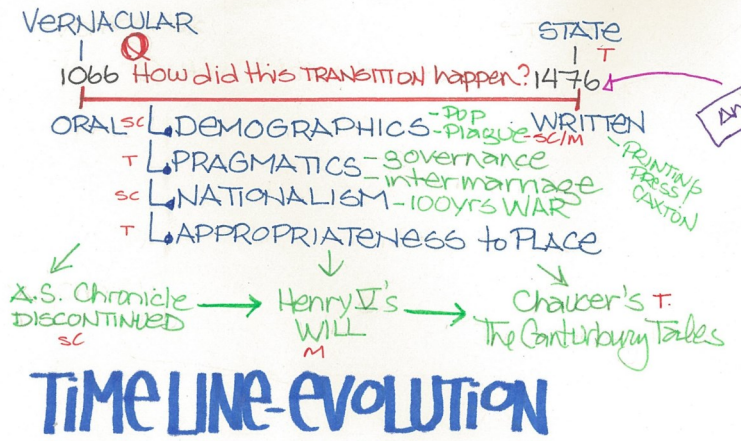 VERNACULAR
STATE
Q
T
1066 How did this TRANSITION happen? 1476
ORAL SC DEMOGRAPHICS -Pop
-Plague WRITTEN
-SC/M
T PRAGMATICS - governance
- intermarriage
SC NATIONALISM - 100yrs WAR
T APPROPRIATENESS to PLACE
- PRINTING
PRESS
CAXTON
A.S. Chronicle
DISCONTINUED
SC
Henry V's
WILL
M
Chaucer's T.
The Canturbury Tales
TIMELINE-EVOLUTION